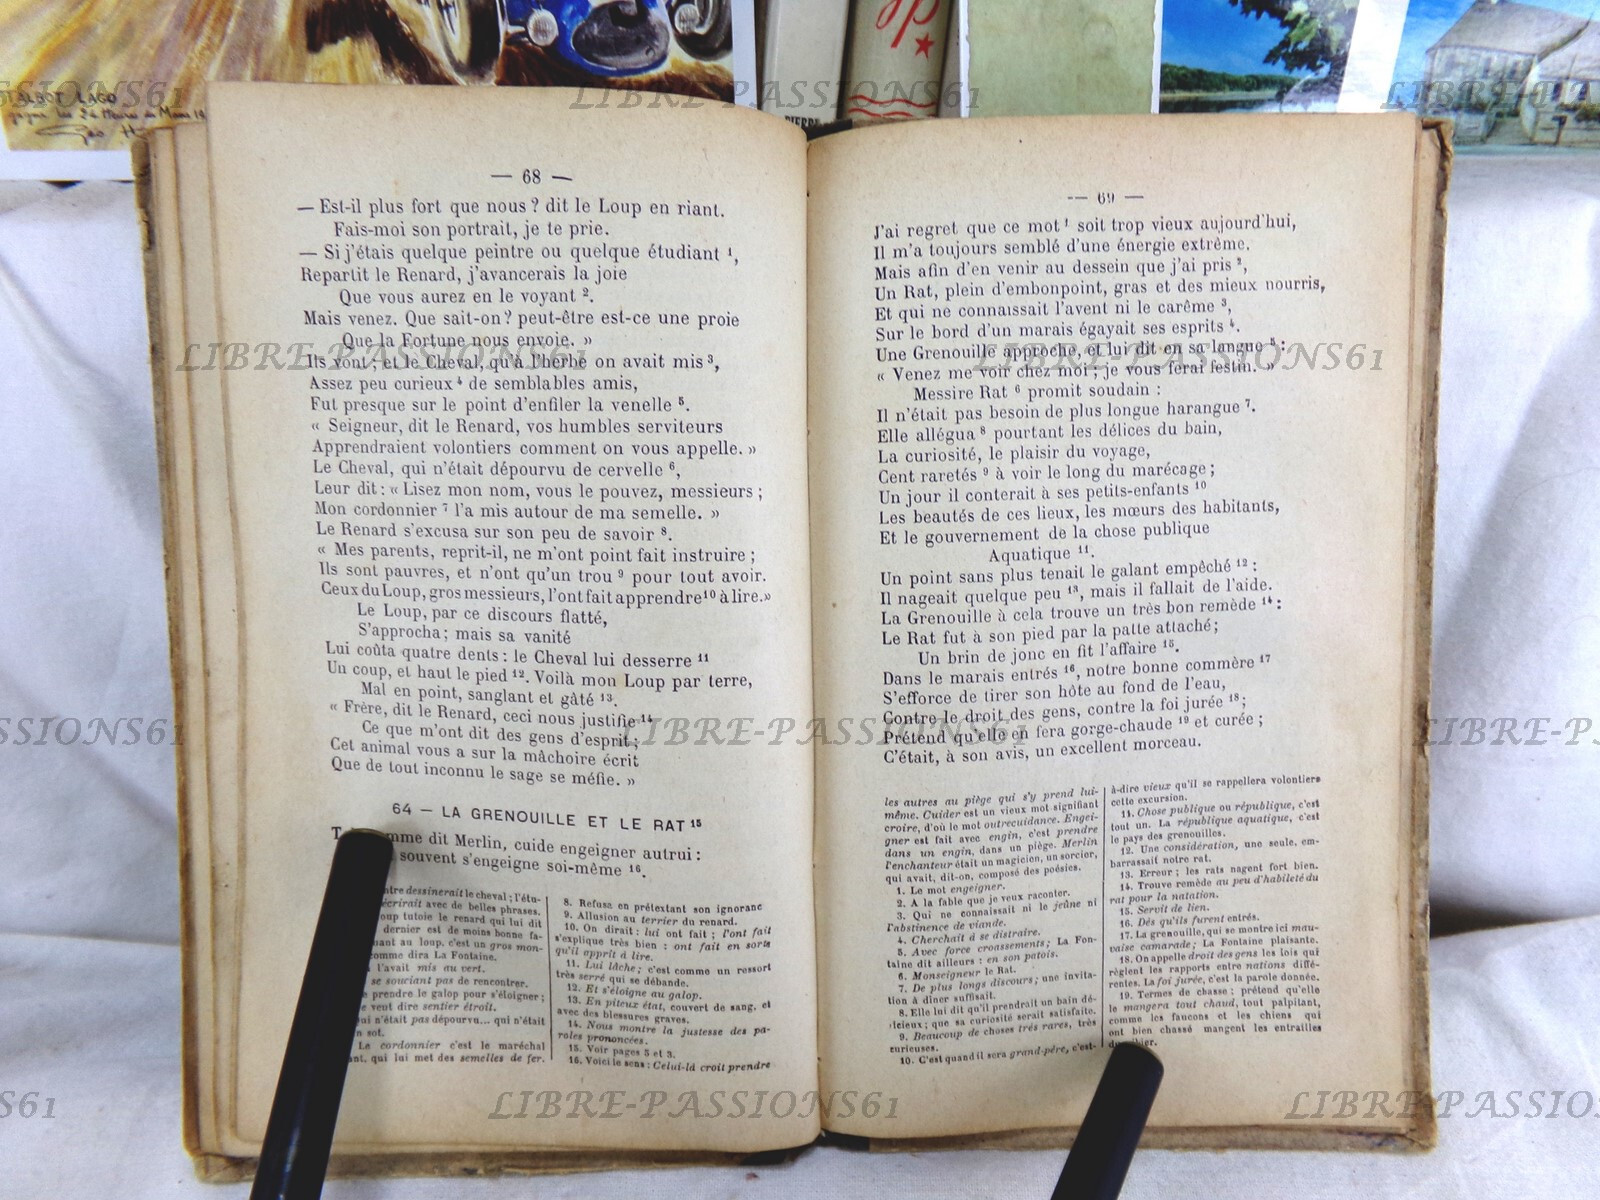 TALBOT LAGO
gagne les 24 Heures du Mans 19
Geo H
PIERRE
de
— 68 —
— Est-il plus fort que nous ? dit le Loup en riant.
Fais-moi son portrait, je te prie.
— Si j'étais quelque peintre ou quelque étudiant ¹,
Repartit le Renard, j'avancerais la joie
Que vous aurez en le voyant ².
Mais venez. Que sait-on ? peut-être est-ce une proie
Que la Fortune nous envoie. »
Ils vont ; et le Cheval, qu'à l'herbe on avait mis ³,
Assez peu curieux ⁴ de semblables amis,
Fut presque sur le point d'enfiler la venelle ⁵.
« Seigneur, dit le Renard, vos humbles serviteurs
Apprendraient volontiers comment on vous appelle. »
Le Cheval, qui n'était dépourvu de cervelle ⁶,
Leur dit : « Lisez mon nom, vous le pouvez, messieurs ;
Mon cordonnier ⁷ l'a mis autour de ma semelle. »
Le Renard s'excusa sur son peu de savoir ⁸.
« Mes parents, reprit-il, ne m'ont point fait instruire ;
Ils sont pauvres, et n'ont qu'un trou ⁹ pour tout avoir.
Ceux du Loup, gros messieurs, l'ont fait apprendre ¹⁰ à lire. »
Le Loup, par ce discours flatté,
S'approcha ; mais sa vanité
Lui coûta quatre dents : le Cheval lui desserre ¹¹
Un coup, et haut le pied ¹². Voilà mon Loup par terre,
Mal en point, sanglant et gâté ¹³.
« Frère, dit le Renard, ceci nous justifie ¹⁴
Ce que m'ont dit des gens d'esprit ;
Cet animal vous a sur la mâchoire écrit
Que de tout inconnu le sage se méfie. »
64 — LA GRENOUILLE ET LE RAT ¹⁵
T mme dit Merlin, cuide engeigner autrui :
souvent s'engeigne soi-même ¹⁶.
ntre dessinerait le cheval ; l'étu-
écrirait avec de belles phrases.
oup tutoie le renard qui lui dit
dernier est de moins bonne fa-
nant au loup, c'est un gros mon-
comme dira La Fontaine.
l'avait mis au vert.
se souciant pas de rencontrer.
prendre le galop pour s'éloigner ;
veut dire sentier étroit.
ui n'était pas dépourvu... qui n'était
n sot.
Le cordonnier c'est le maréchal
ant, qui lui met des semelles de fer.
8. Refusa en prétextant son ignoranc
9. Allusion au terrier du renard.
10. On dirait : lui ont fait ; l'ont fait
s'explique très bien : ont fait en sorte
qu'il apprît à lire.
11. Lui lâche ; c'est comme un ressort
très serré qui se débande.
12. Et s'éloigne au galop.
13. En piteux état, couvert de sang, et
avec des blessures graves.
14. Nous montre la justesse des pa-
roles prononcées.
15. Voir pages 5 et 3.
16. Voici le sens : Celui-là croit prendre
— 69 —
J'ai regret que ce mot ¹ soit trop vieux aujourd'hui,
Il m'a toujours semblé d'une énergie extrême.
Mais afin d'en venir au dessein que j'ai pris ²,
Un Rat, plein d'embonpoint, gras et des mieux nourris,
Et qui ne connaissait l'avent ni le carême ³,
Sur le bord d'un marais égayait ses esprits ⁴.
Une Grenouille approche, et lui dit en sa langue ⁵ :
« Venez me voir chez moi ; je vous ferai festin. »
Messire Rat ⁶ promit soudain :
Il n'était pas besoin de plus longue harangue ⁷.
Elle allégua ⁸ pourtant les délices du bain,
La curiosité, le plaisir du voyage,
Cent raretés ⁹ à voir le long du marécage ;
Un jour il conterait à ses petits-enfants ¹⁰
Les beautés de ces lieux, les mœurs des habitants,
Et le gouvernement de la chose publique
Aquatique ¹¹.
Un point sans plus tenait le galant empêché ¹² :
Il nageait quelque peu ¹³, mais il fallait de l'aide.
La Grenouille à cela trouve un très bon remède ¹⁴ :
Le Rat fut à son pied par la patte attaché ;
Un brin de jonc en fit l'affaire ¹⁵.
Dans le marais entrés ¹⁶, notre bonne commère ¹⁷
S'efforce de tirer son hôte au fond de l'eau,
Contre le droit des gens, contre la foi jurée ¹⁸ ;
Prétend qu'elle en fera gorge-chaude ¹⁹ et curée ;
C'était, à son avis, un excellent morceau.
les autres au piège qui s'y prend lui-
même. Cuider est un vieux mot signifiant
croire, d'où le mot outrecuidance. Engei-
gner est fait avec engin, c'est prendre
dans un engin, dans un piège. Merlin
l'enchanteur était un magicien, un sorcier,
qui avait, dit-on, composé des poésies.
1. Le mot engeigner.
2. A la fable que je veux raconter.
3. Qui ne connaissait ni le jeûne ni
l'abstinence de viande.
4. Cherchait à se distraire.
5. Avec force croassements ; La Fon-
taine dit ailleurs : en son patois.
6. Monseigneur le Rat.
7. De plus longs discours ; une invita-
tion à dîner suffisait.
8. Elle lui dit qu'il prendrait un bain dé-
licieux ; que sa curiosité serait satisfaite.
9. Beaucoup de choses très rares, très
curieuses.
10. C'est quand il sera grand-père, c'est-
à-dire vieux qu'il se rappellera volontiers
cette excursion.
11. Chose publique ou république, c'est
tout un. La république aquatique, c'est
le pays des grenouilles.
12. Une considération, une seule, em-
barrassait notre rat.
13. Erreur ; les rats nagent fort bien.
14. Trouve remède au peu d'habileté du
rat pour la natation.
15. Servit de lien.
16. Dès qu'ils furent entrés.
17. La grenouille, qui se montre ici mau-
vaise camarade ; La Fontaine plaisante.
18. On appelle droit des gens les lois qui
règlent les rapports entre nations diffé-
rentes. La foi jurée, c'est la parole donnée.
19. Termes de chasse ; prétend qu'elle
le mangera tout chaud, tout palpitant,
comme les faucons et les chiens qui
ont bien chassé mangent les entrailles
du gibier.
LIBRE-PASSIONS61